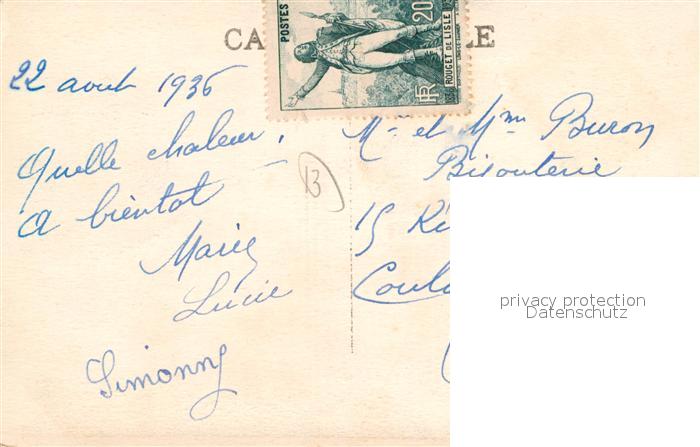 CA
LE
POSTES
20
ROUGET DE LISLE
RF
22 aout 1936
Quelle chaleur!
A bientot
Marie
Lucie
Simonne
13
Mr et Mme Buron
Bijouterie
15 R
Coul
privacy protection
Datenschutz